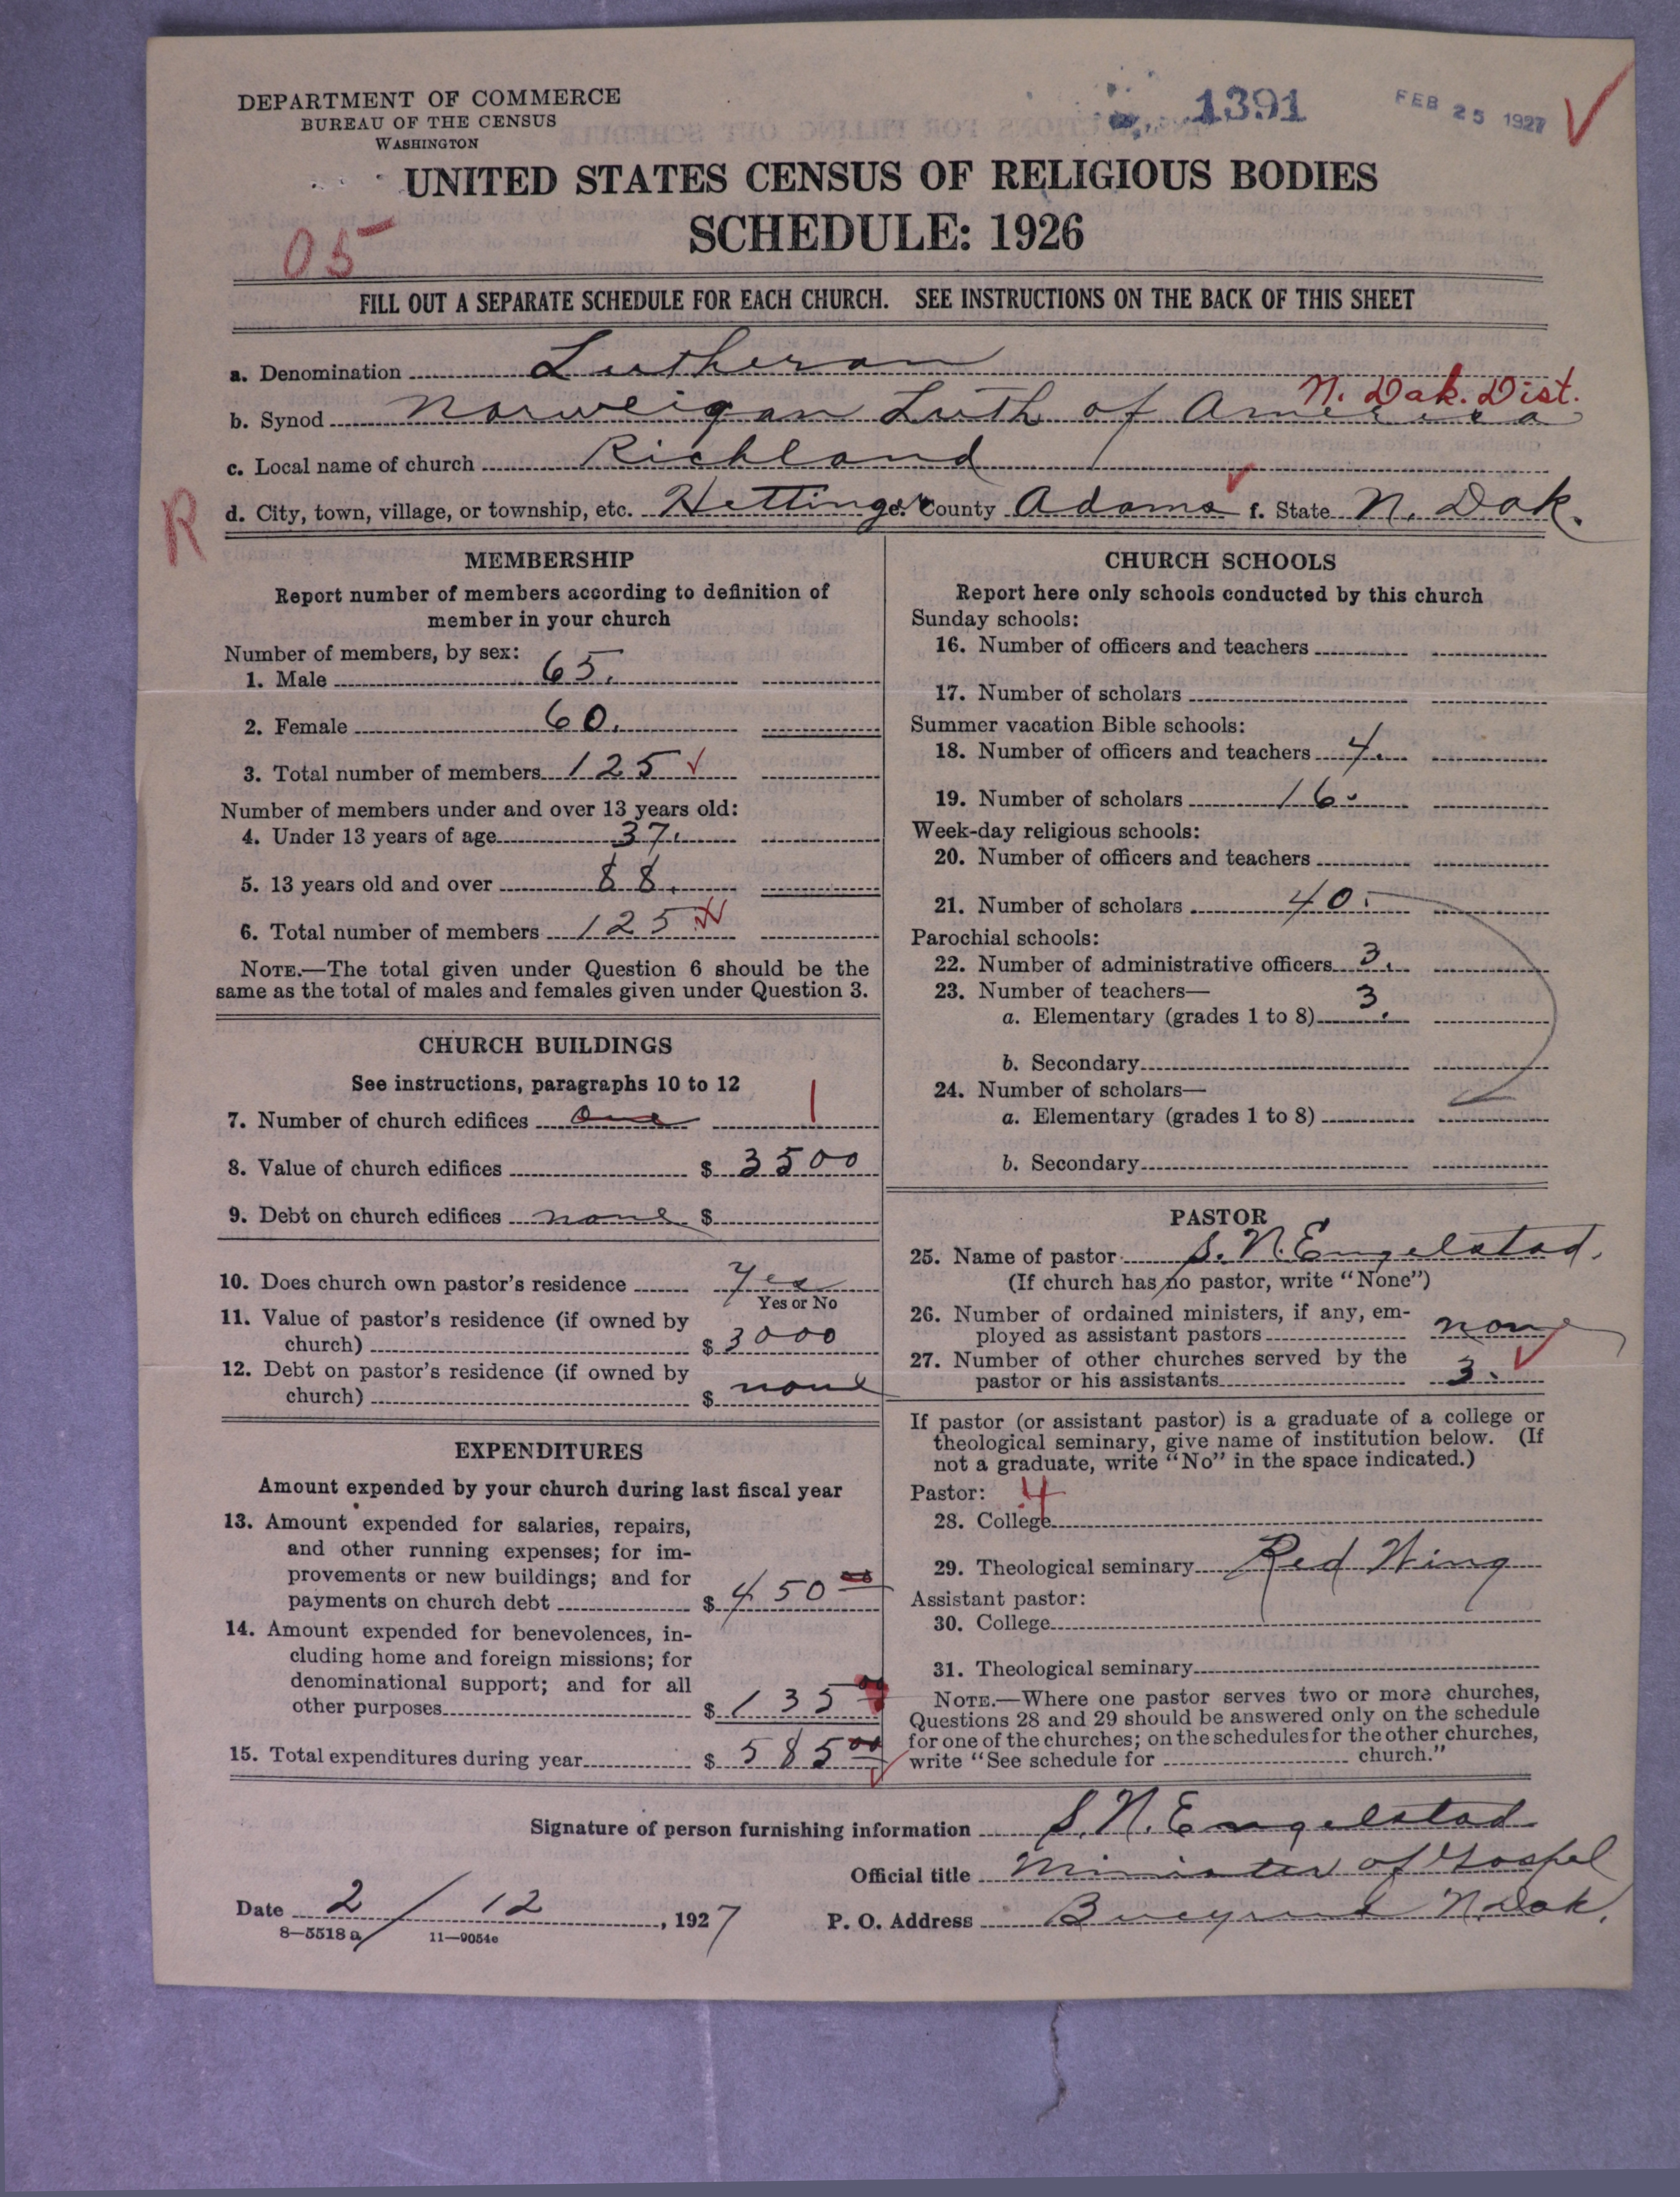 DEPARTMENT OF COMMERCE
BUREAU OF THE CENSUS
WASHINGTON
1391
FEB 25 1927
UNITED STATES CENSUS OF RELIGIOUS BODIES
SCHEDULE: 1926
05
FILL OUT A SEPARATE SCHEDULE FOR EACH CHURCH. SEE INSTRUCTIONS ON THE BACK OF THIS SHEET
a. Denomination Lutheran
N. Dak. Dist.
b. Synod Norweigan Luth of America
c. Local name of church Richland
R
d. City, town, village, or township, etc. Hettinger e. County Adams f. State N. Dak.
MEMBERSHIP
Report number of members according to definition of
member in your church
Number of members, by sex:
1. Male 65.
2. Female 60.
3. Total number of members 125
Number of members under and over 13 years old:
4. Under 13 years of age 37.
5. 13 years old and over 88.
6. Total number of members 125
NOTE.—The total given under Question 6 should be the
same as the total of males and females given under Question 3.
CHURCH BUILDINGS
See instructions, paragraphs 10 to 12
7. Number of church edifices one 1
8. Value of church edifices $ 3500
9. Debt on church edifices none $
10. Does church own pastor's residence Yes
Yes or No
11. Value of pastor's residence (if owned by
church) $ 3000
12. Debt on pastor's residence (if owned by
church) $ none
EXPENDITURES
Amount expended by your church during last fiscal year
13. Amount expended for salaries, repairs,
and other running expenses; for im-
provements or new buildings; and for
payments on church debt $ 450 00
14. Amount expended for benevolences, in-
cluding home and foreign missions; for
denominational support; and for all
other purposes $ 135 00
15. Total expenditures during year $ 585 00
CHURCH SCHOOLS
Report here only schools conducted by this church
Sunday schools:
16. Number of officers and teachers
17. Number of scholars
Summer vacation Bible schools:
18. Number of officers and teachers 4.
19. Number of scholars 16.
Week-day religious schools:
20. Number of officers and teachers
21. Number of scholars 40.
Parochial schools:
22. Number of administrative officers 3.
23. Number of teachers—
a. Elementary (grades 1 to 8) 3.
b. Secondary
24. Number of scholars—
a. Elementary (grades 1 to 8)
b. Secondary
PASTOR
25. Name of pastor S. N. Engelstad.
(If church has no pastor, write "None")
26. Number of ordained ministers, if any, em-
ployed as assistant pastors none
27. Number of other churches served by the
pastor or his assistants 3.
If pastor (or assistant pastor) is a graduate of a college or
theological seminary, give name of institution below. (If
not a graduate, write "No" in the space indicated.)
Pastor: 4
28. College
29. Theological seminary Red Wing
Assistant pastor:
30. College
31. Theological seminary
NOTE.—Where one pastor serves two or more churches,
Questions 28 and 29 should be answered only on the schedule
for one of the churches; on the schedules for the other churches,
write "See schedule for church."
Signature of person furnishing information S. N. Engelstad
Official title Minister of Gospel
Date 2/12, 1927
P. O. Address Bucyrus N. Dak.
8—5518 a 11—9054c